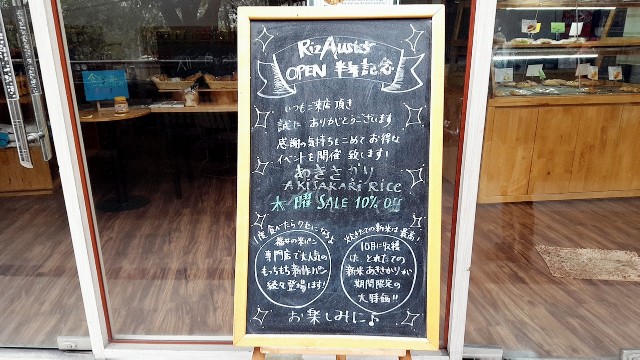 RizAusts
OPEN 半年記念
いつもご来店頂き
誠に ありがとうございます
感謝の気持ちをこめて お得な
イベントを開催 致します!
あきさかり
AKISAKARi Rice
木曜 SALE 10% Off
1度食べたらクセになるよ
福井の米パン
専門店で大人気の
もっちもち新作パン
続々登場します!
炊きたての新米は最高!
10月に収穫
した、とれたての
新米あきさかりが
期間限定の
大特価!!
お楽しみに♪